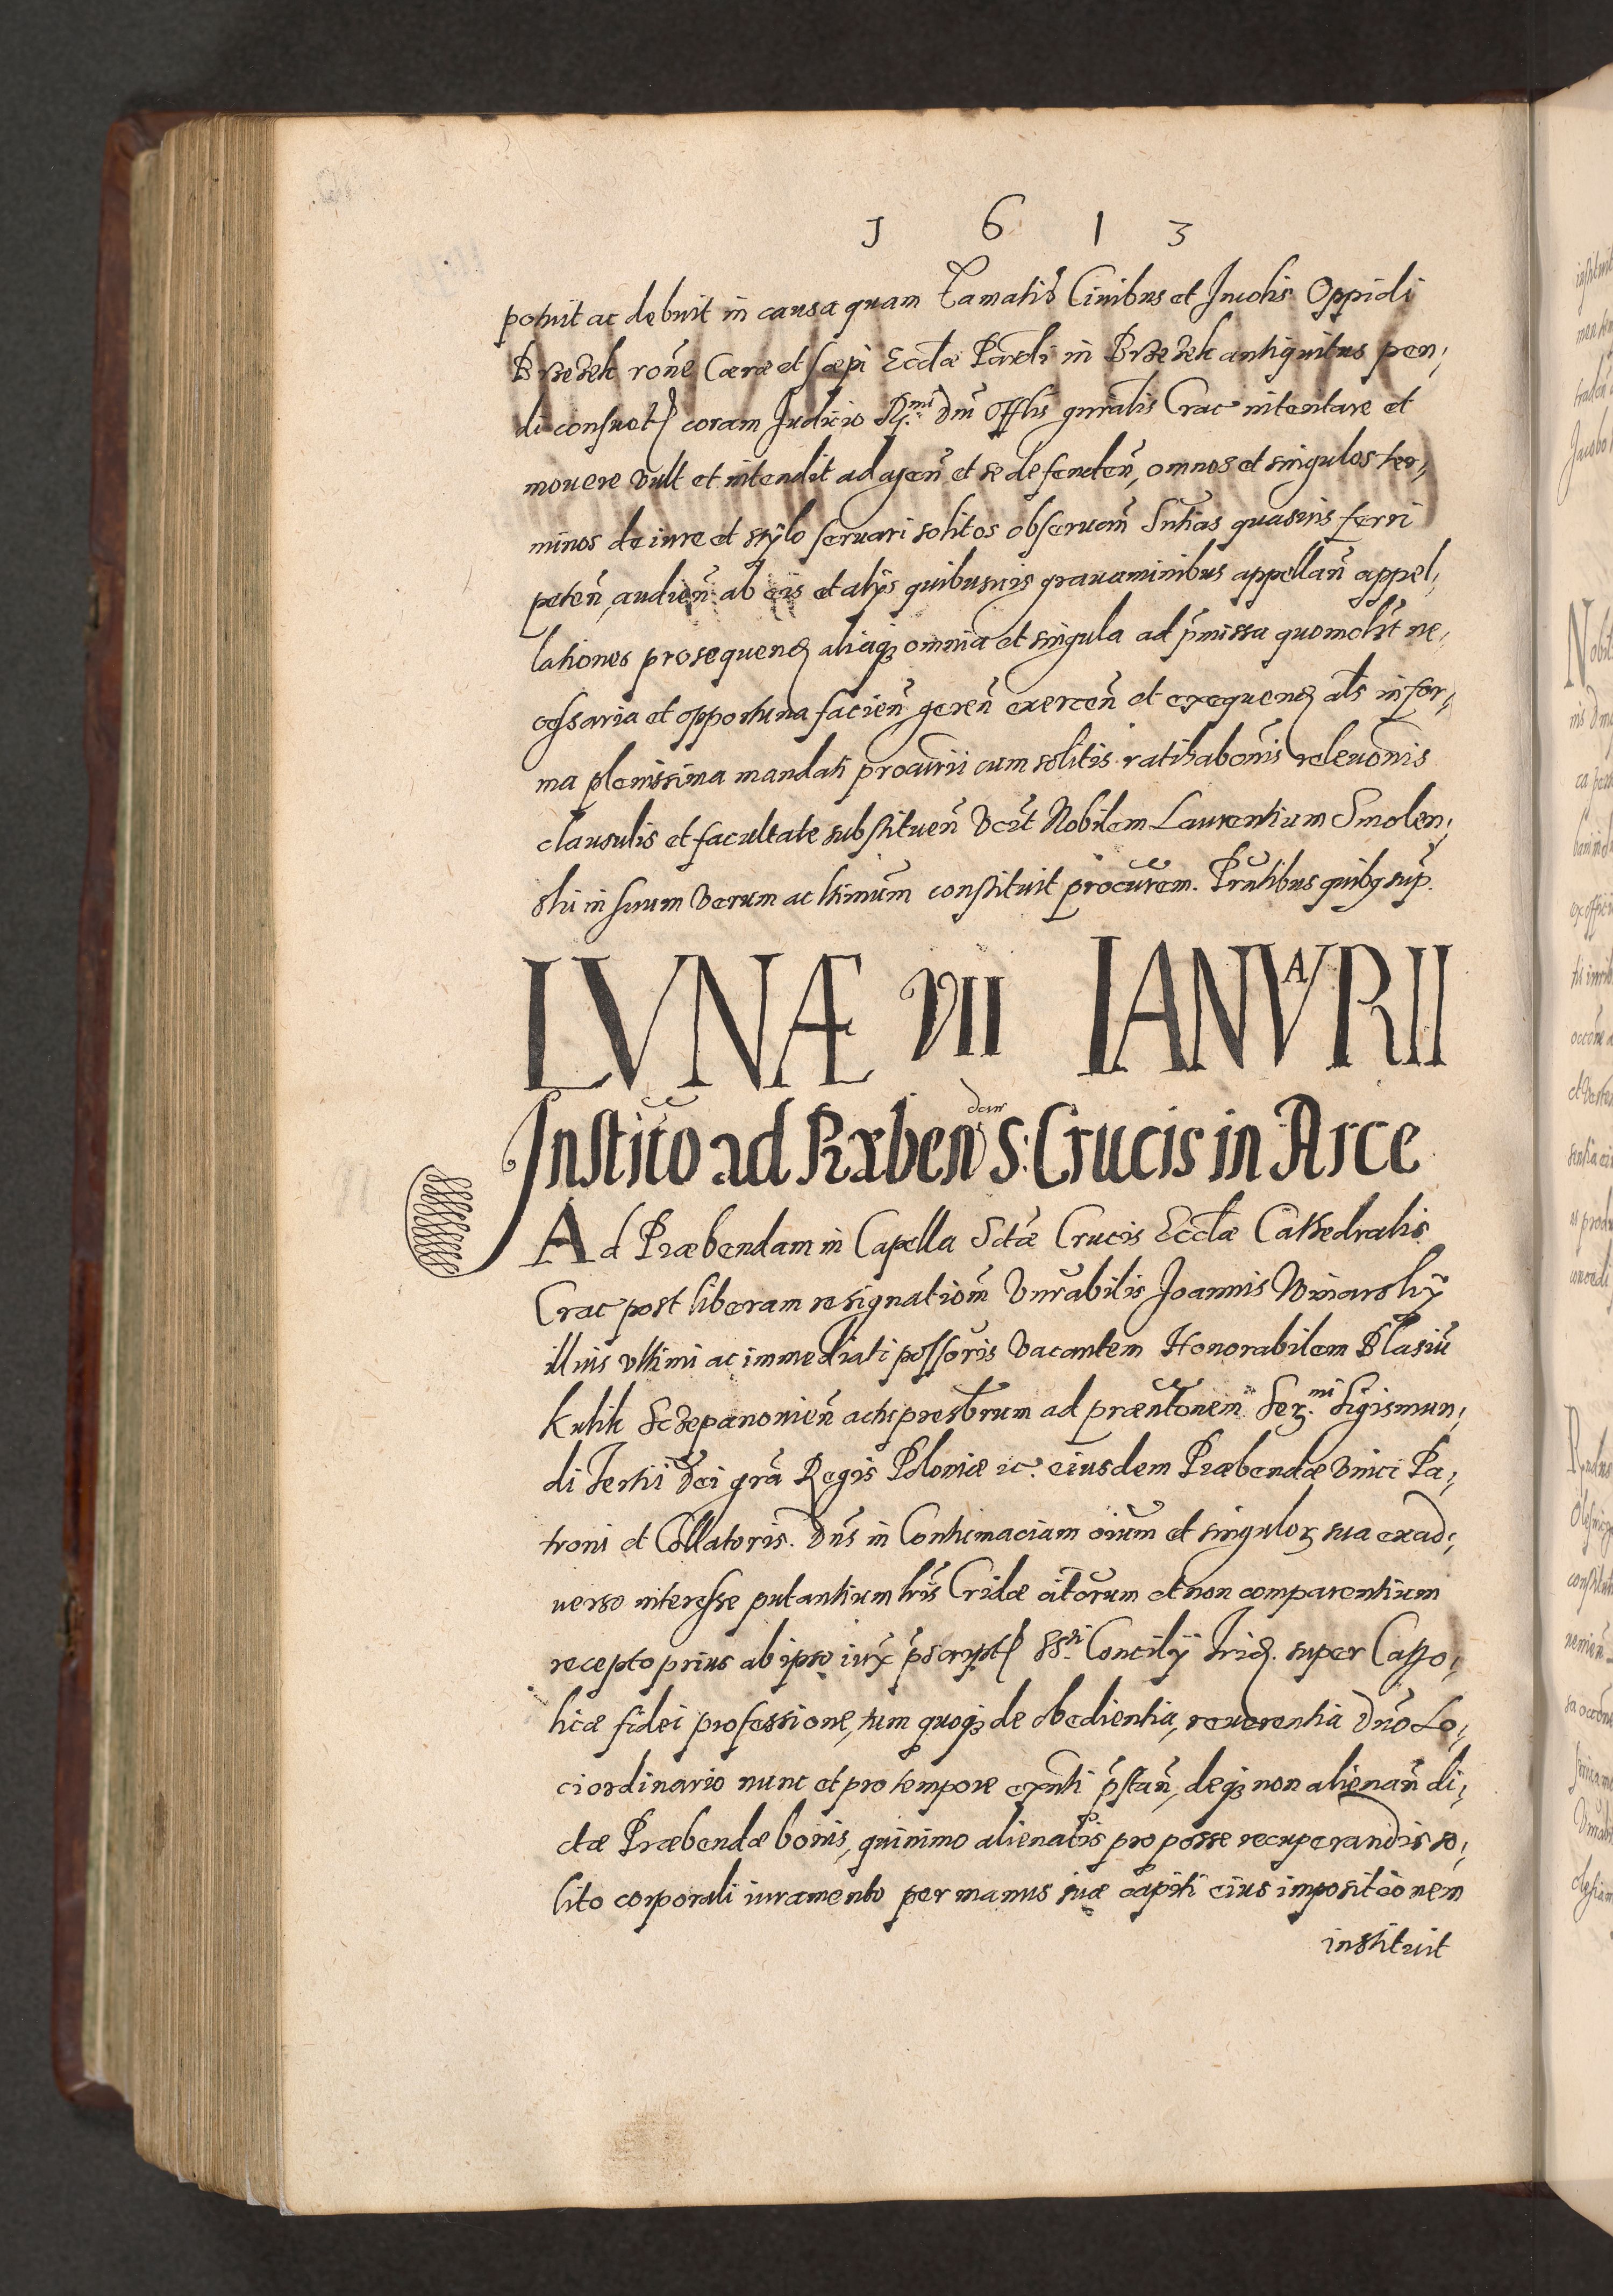 1 6 1 3
potuit ac debuit in causa quam famatis Ciuibus et Incolis Oppidi
Brzezek rone Cæræ et sæpi Eccłæ Paroli in Brzezek antiquitus pen,
di consuet coram Iudicio R.mi Dni Offlis gnralis Crac intentare et
mouere vult et intendit ad agen̄ et se defenden̄, omnes et singulos ter,
minos de iure et stylo seruari solitos obseruan̄ Sntias quasuis ferri
peten̄, audien̄ ab eis et alys quibusuis grauaminibus appellan̄ appel,
lationes prosequen aliaq omnia et singula ad pmissa quomolt ne,
cessaria et opportuna facien̄ geren̄ exercen̄ et exequen als in for,
ma plenissima mandati procurii cum solitis ratihabonis releuonis
clausulis et facultate substituen̄ Vczt Nobilem Laurentium Smolen,
ski in suum verum ac ltimum constituit procurem. Pruntibus quibq sup.
LVNÆ VII IANVARII
Institto ad Præben dam S: Crucis in Arce
Ad Præbendam in Capella Sctæ Crucis Eccłæ Cathedralis
Crac post liberam resignationem Vnrabilis Joannis Winarsky
illius vltimi ac immediati possoris vacantem Honorabilem Blasiū
Kulik Sczepanowien̄ actu presbrum ad præntonem Ser.mi Sigismun,
di Tertii Dei gra Regis Poloniæ ic. eiusdem Præbendæ vnici Pa,
troni et Collatoris. Dns in Contumaciam oium et singulor sua exad,
uerso interesse putantium lris Cridæ citorum et non comparentium
recepto prius ab ipso iux pscript SSti Concilÿ Trid. super Catho,
licæ fidei professione, tum quoq de obedientia, reuerentia Dno Lo,
ci ordinario nunc et pro tempore exnti pstan̄, deq non alienan̄ di,
ctæ Præbendæ bonis, quinimo alienatis pro posse recuperandis so,
lito corporali iuramento per manus suæ capiti eius impositionem
instituit